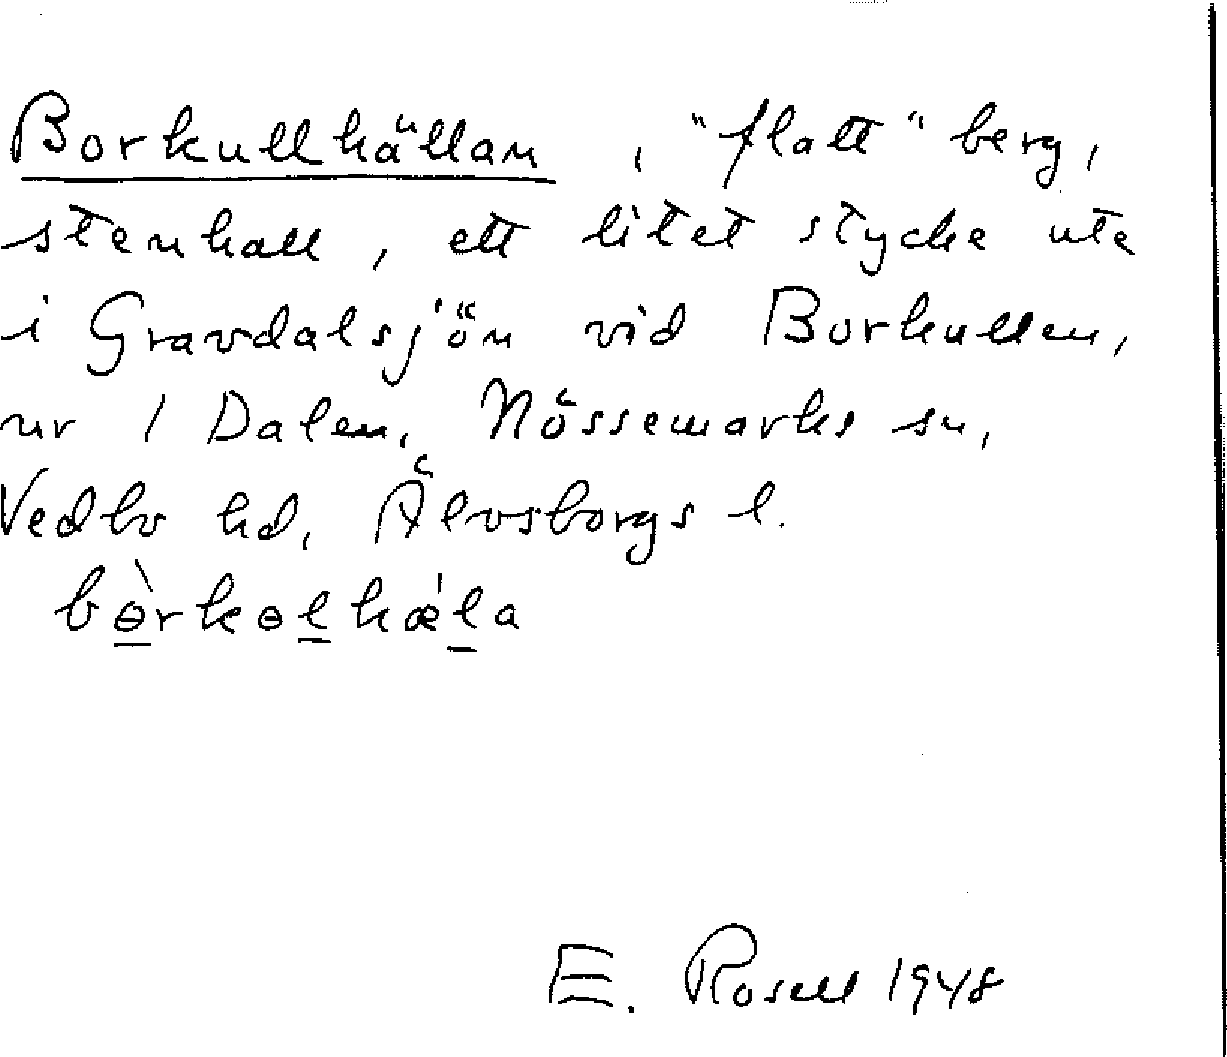 Borkullhällan, "flatt" berg,
stenhall, ett litet stycke ute
i Gravdalsjön vid Borkullen,
nr 1 Dalen, Nössemarks sn,
Vedbo hd, Älvsborgs l.
bɵ̀rkɵlhǽla
E. Rosell 1948